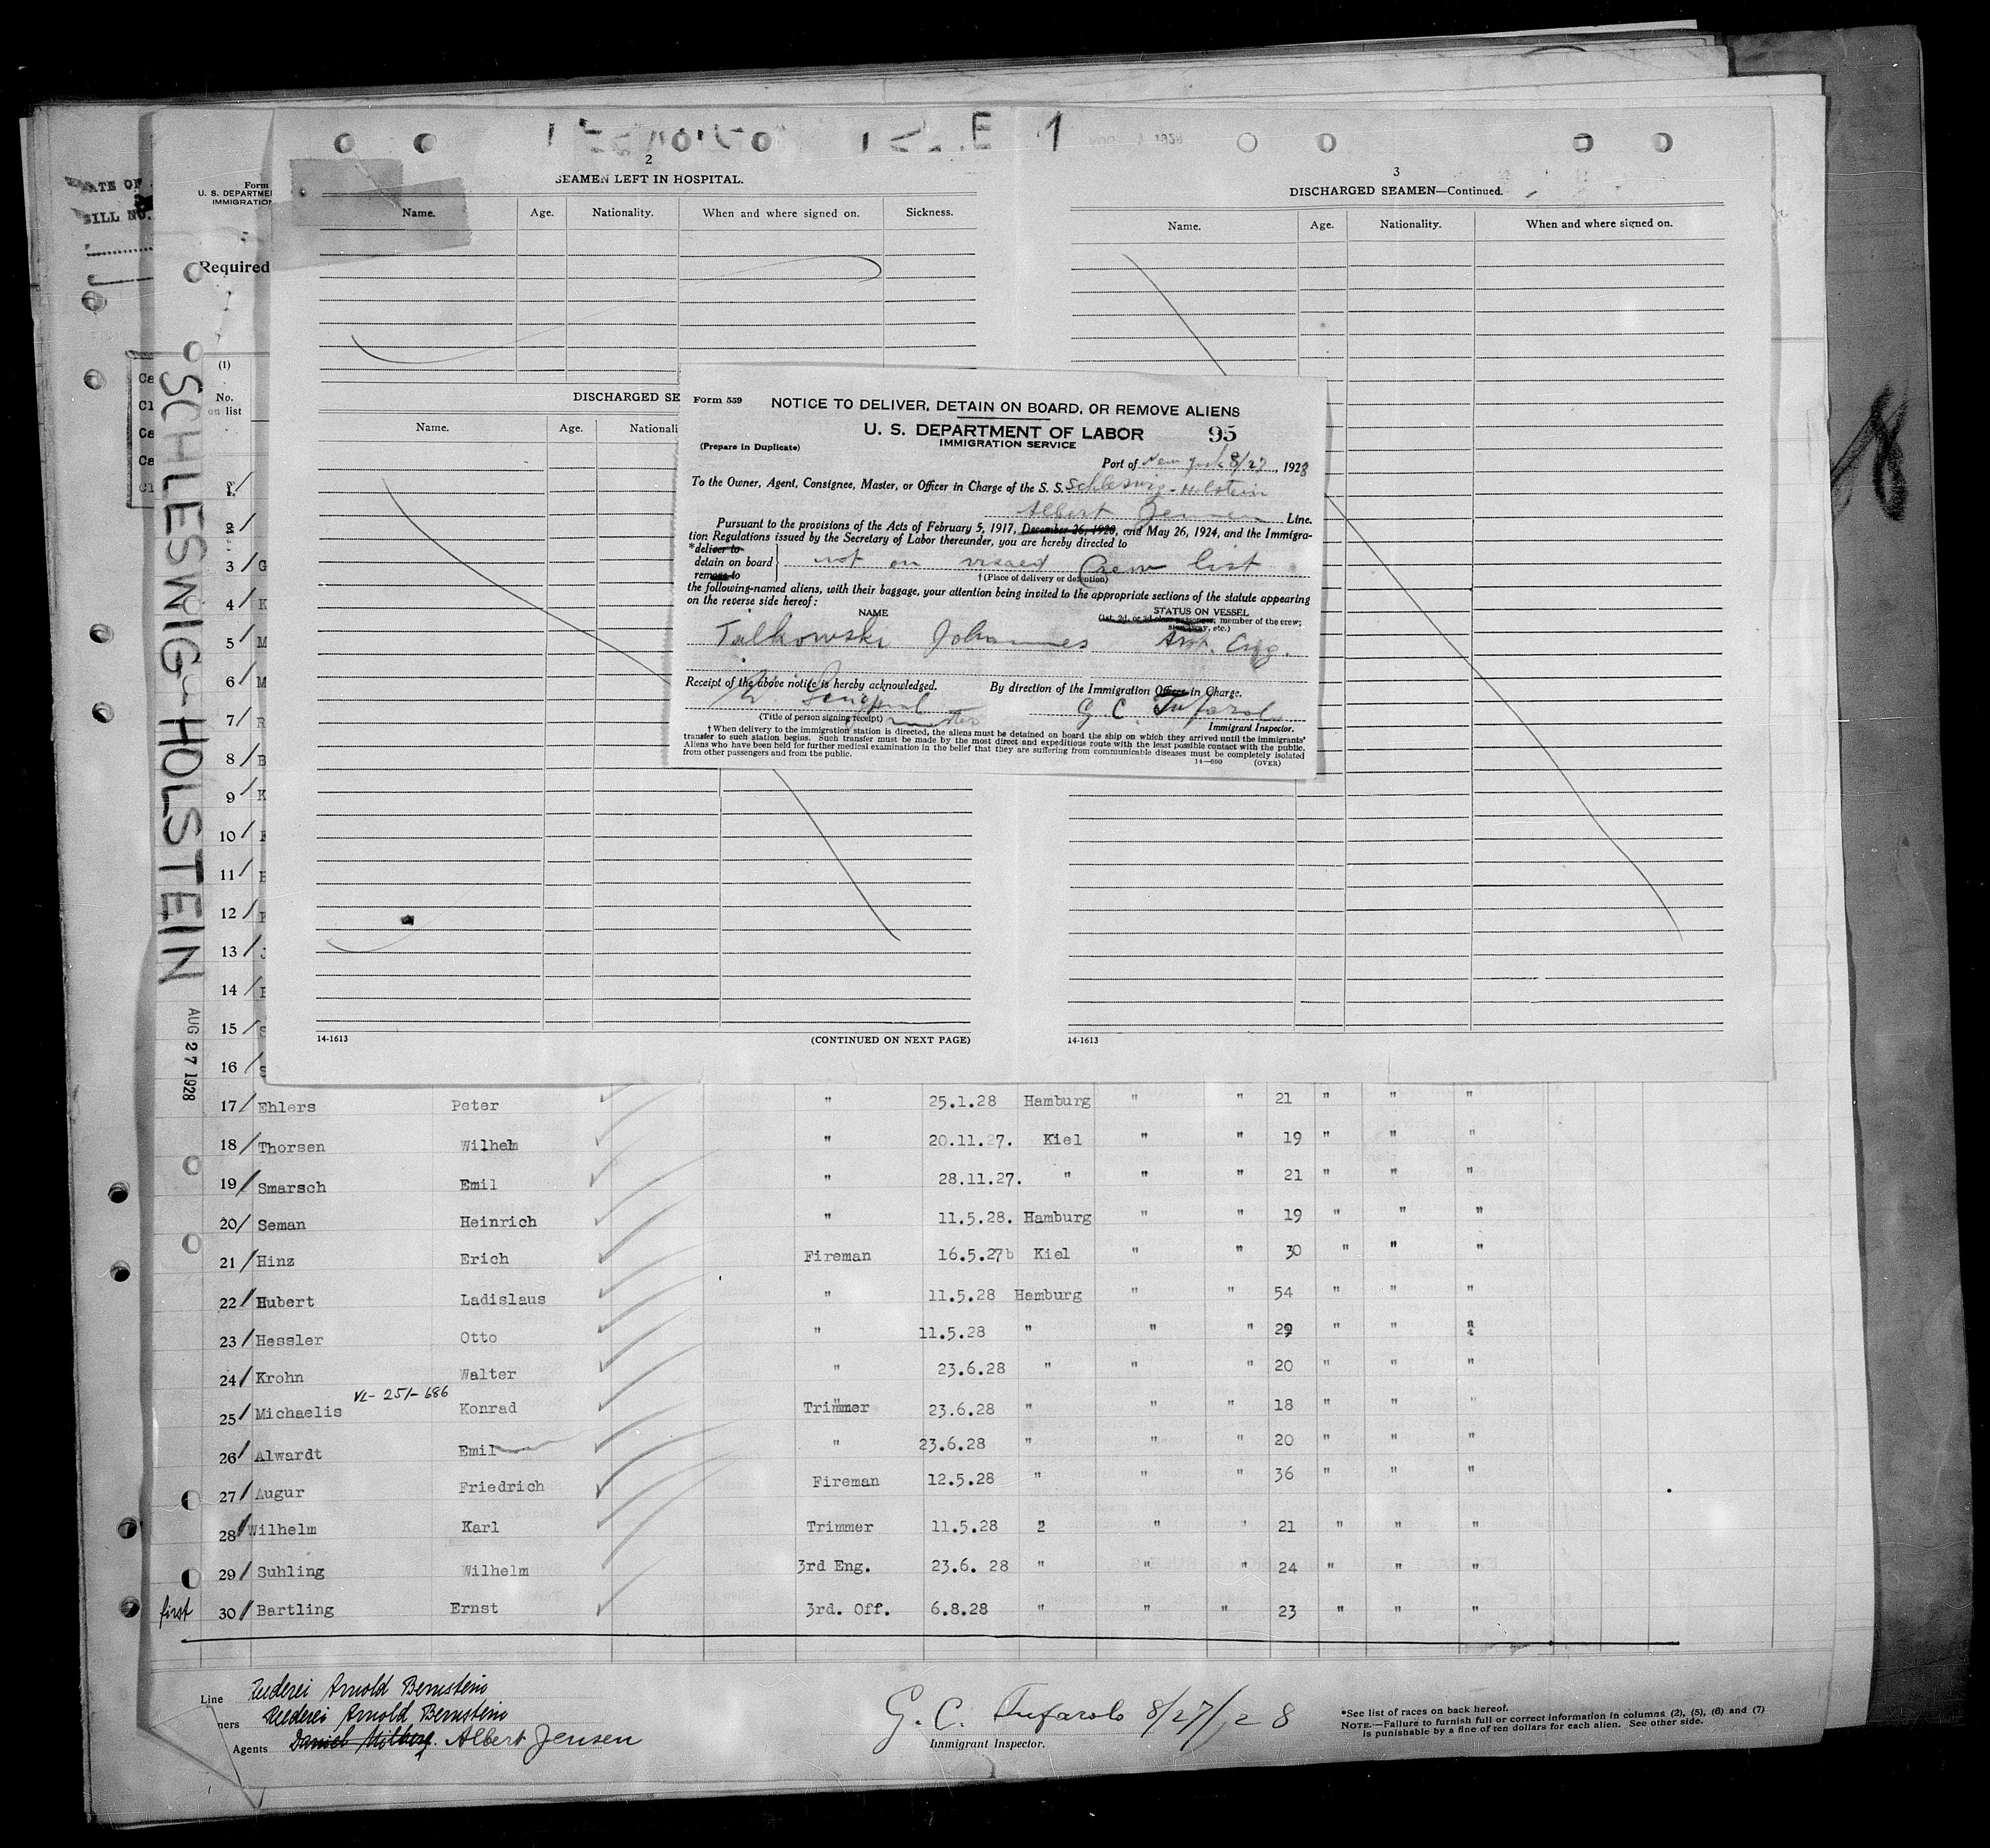 2
SEAMEN LEFT IN HOSPITAL.
Name. Age. Nationality. When and where signed on. Sickness.
DISCHARGED SE
Name. Age. Nationali
14-1613 (CONTINUED ON NEXT PAGE)
3
DISCHARGED SEAMEN—Continued.
Name. Age. Nationality. When and where signed on.
14-1613
Form 559
NOTICE TO DELIVER, DETAIN ON BOARD, OR REMOVE ALIENS
U. S. DEPARTMENT OF LABOR 95
IMMIGRATION SERVICE
(Prepare in Duplicate)
Port of New York 8/27, 1928
To the Owner, Agent, Consignee, Master, or Officer in Charge of the S. S. Schleswig-Holstein
Albert Jensen Line.
Pursuant to the provisions of the Acts of February 5, 1917, December 26, 1920, and May 26, 1924, and the Immigra-
tion Regulations issued by the Secretary of Labor thereunder, you are hereby directed to
*deliver to
detain on board } not on visaed Crew list
remove to
†(Place of delivery or detention)
the following-named aliens, with their baggage, your attention being invited to the appropriate sections of the statute appearing
on the reverse side hereof:
NAME STATUS ON VESSEL
(1st, 2d, or 3d class passenger; member of the crew;
stowaway, etc.)
Talkowski Johannes Asst. Eng.
Receipt of the above notice is hereby acknowledged. By direction of the Immigration Officer in Charge.
G. C. Tufarolo
(Title of person signing receipt) master Immigrant Inspector.
†When delivery to the immigration station is directed, the aliens must be detained on board the ship on which they arrived until the immigrants'
transfer to such station begins. Such transfer must be made by the most direct and expeditious route with the least possible contact with the public.
Aliens who have been held for further medical examination in the belief that they are suffering from communicable diseases must be completely isolated
from other passengers and from the public.
14—660 (OVER)
ATE OF
BILL NO.
Form
U. S. DEPARTME
IMMIGRATION
Required
(1)
No.
on list
SCHLESWIG-HOLSTEIN
AUG 27 1928
1
2
3 G
4 K
5 M
6 M
7 R
8 B
9 K
10
11
12
13 J
14
15 S
16 S
17 Ehlers Peter " 25.1.28 Hamburg " " 21 " " "
18 Thorsen Wilhelm " 20.11.27. Kiel " " 19 " " "
19 Smarsch Emil " 28.11.27. " " " 21 " " "
20 Seman Heinrich " 11.5.28. Hamburg " " 19 " " "
21 Hinz Erich Fireman 16.5.27b Kiel " " 30 " " "
22 Hubert Ladislaus " 11.5.28 Hamburg " " 54 " " "
23 Hessler Otto " 11.5.28 " " " 29 " " "
24 Krohn Walter " 23.6.28 " " " 20 " " "
VL-251-686
25 Michaelis Konrad Trimmer 23.6.28 " " " 18 " " "
26 Alwardt Emil " 23.6.28 " " " 20 " " "
27 Augur Friedrich Fireman 12.5.28 " " " 36 " " "
28 Wilhelm Karl Trimmer 11.5.28 2 " " 21 " " "
29 Suhling Wilhelm 3rd Eng. 23.6. 28 " " " 24 " " "
first 30 Bartling Ernst 3rd. Off. 6.8.28 " " " 23 " " "
Line Reederei Arnold Bernstein
ners Reederei Arnold Bernstein
Agents Daniel Milberg. Albert Jensen
G. C. Tufarolo 8/27/28
Immigrant Inspector.
*See list of races on back hereof.
NOTE.—Failure to furnish full or correct information in columns (2), (5), (6) and (7)
is punishable by a fine of ten dollars for each alien. See other side.